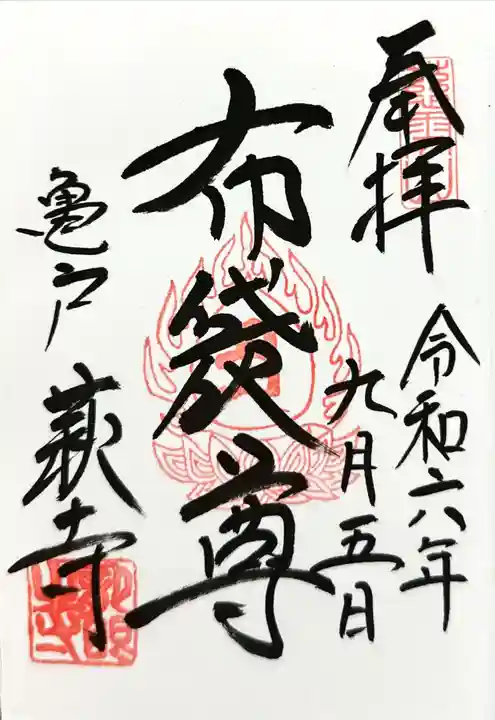 奉拝
令和六年
九月五日
布袋尊
亀戸 萩寺